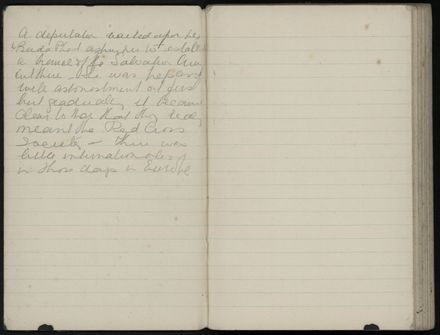 A deputation waited upon her
Buda Pest asking her to establish
a branch of the Salvation Army
in
she was
with astonishment at first
but gradually it became
clear to her that they really
meant the Red Cross
Society – there was
little information
in those days in Europe